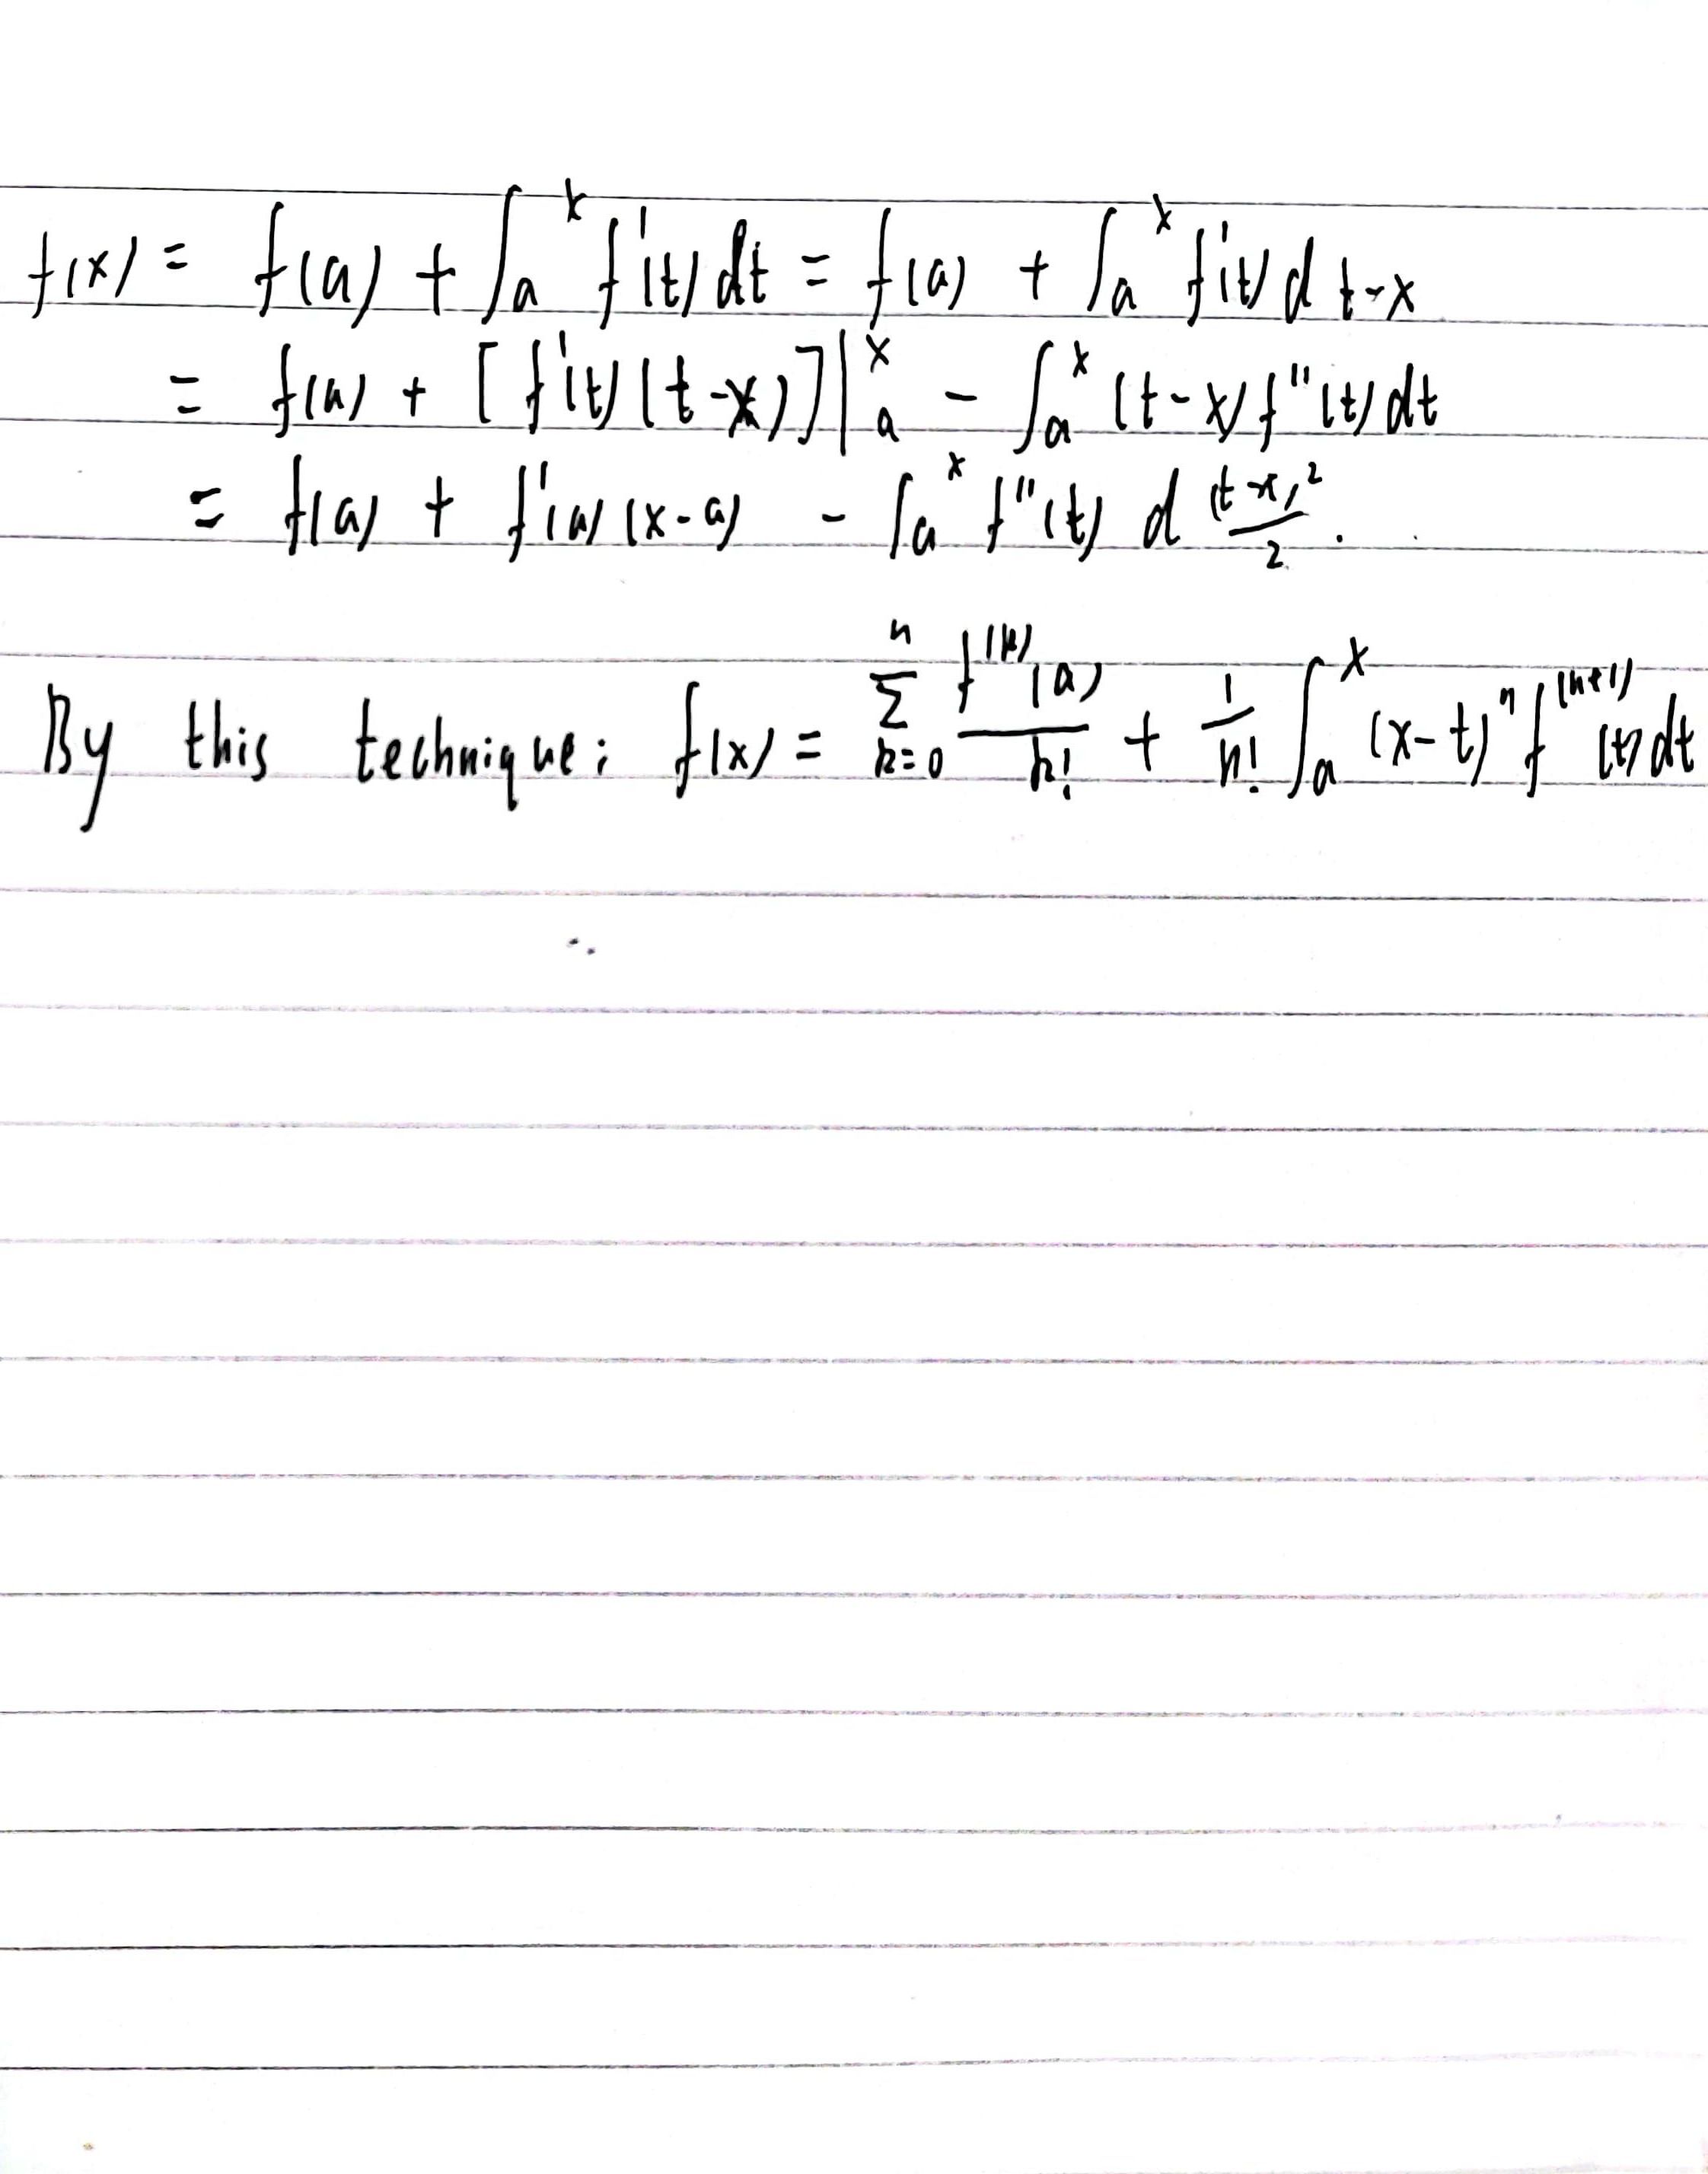 f(x) = f(a) + ∫ₐˣ f'(t) dt = f(a) + ∫ₐˣ f'(t) d t-x
= f(a) + [f'(t)(t-x)]|ₐˣ - ∫ₐˣ (t-x) f''(t) dt
= f(a) + f'(a)(x-a) - ∫ₐˣ f''(t) d (t-x)²/2 .
By this technique: f(x) = Σₖ₌₀ⁿ f⁽ᵏ⁾(a)/k! + 1/n! ∫ₐˣ (x-t)ⁿ f⁽ⁿ⁺¹⁾(t) dt